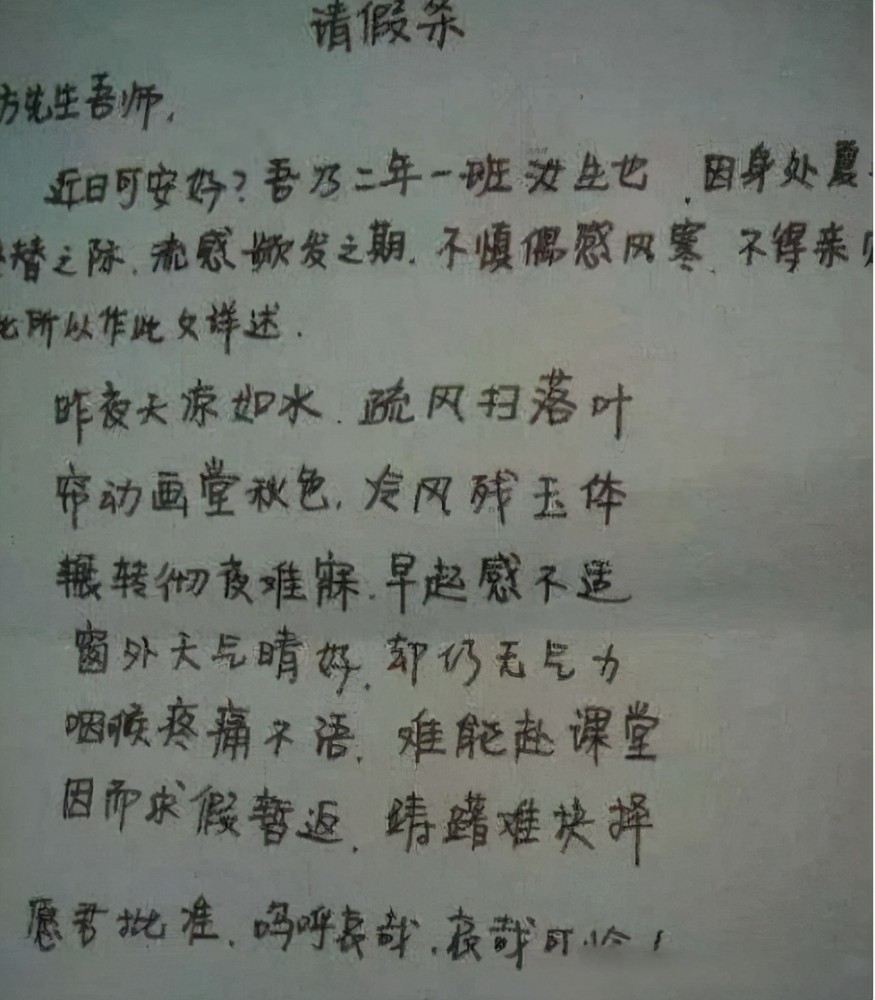 请假条
方先生吾师，
近日可安好？吾乃二年一班汝生也，因身处夏
替之际，流感频发之期，不慎偶感风寒，不得亲
所以作此文详述．
昨夜天凉如水．疏风扫落叶
帘动画堂秋色，冷风残玉体
辗转彻夜难寐．早起感不适
窗外天气晴好，却仍无气力
咽喉疼痛不语，难能赴课堂
因而求假暂返，踌躇难抉择
愿君批准，呜呼哀哉，哀哉可怜！